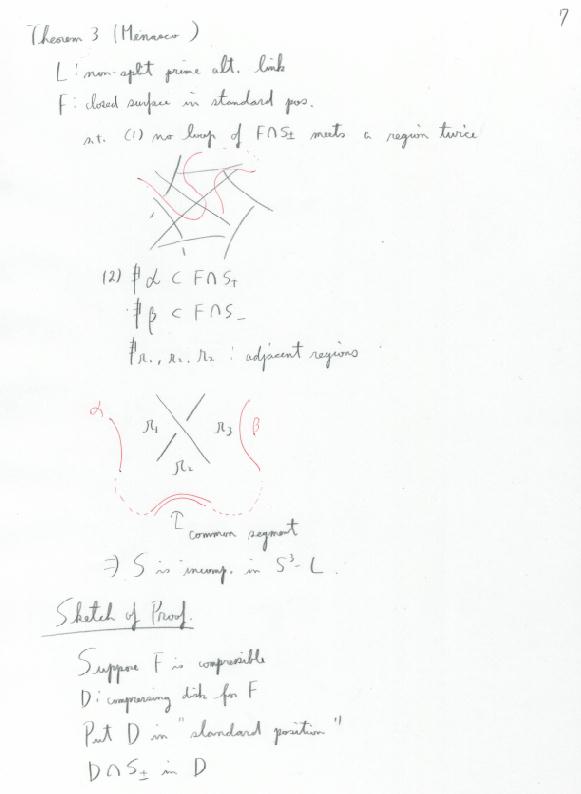 7
Theorem 3 (Menasco)
L : non-split prime alt. link
F : closed surface in standard pos.
s.t. (1) no loop of F∩S± meets a region twice
(2) ∄ α ⊂ F∩S+
∄ β ⊂ F∩S−
∄ r1, r2, r3 : adjacent regions
α r1 r3 β
r2
common segment
⇒ S is incomp. in S³-L.
Sketch of Proof.
Suppose F is compressible
D : compressing disk for F
Put D in "standard position"
D∩S± in D